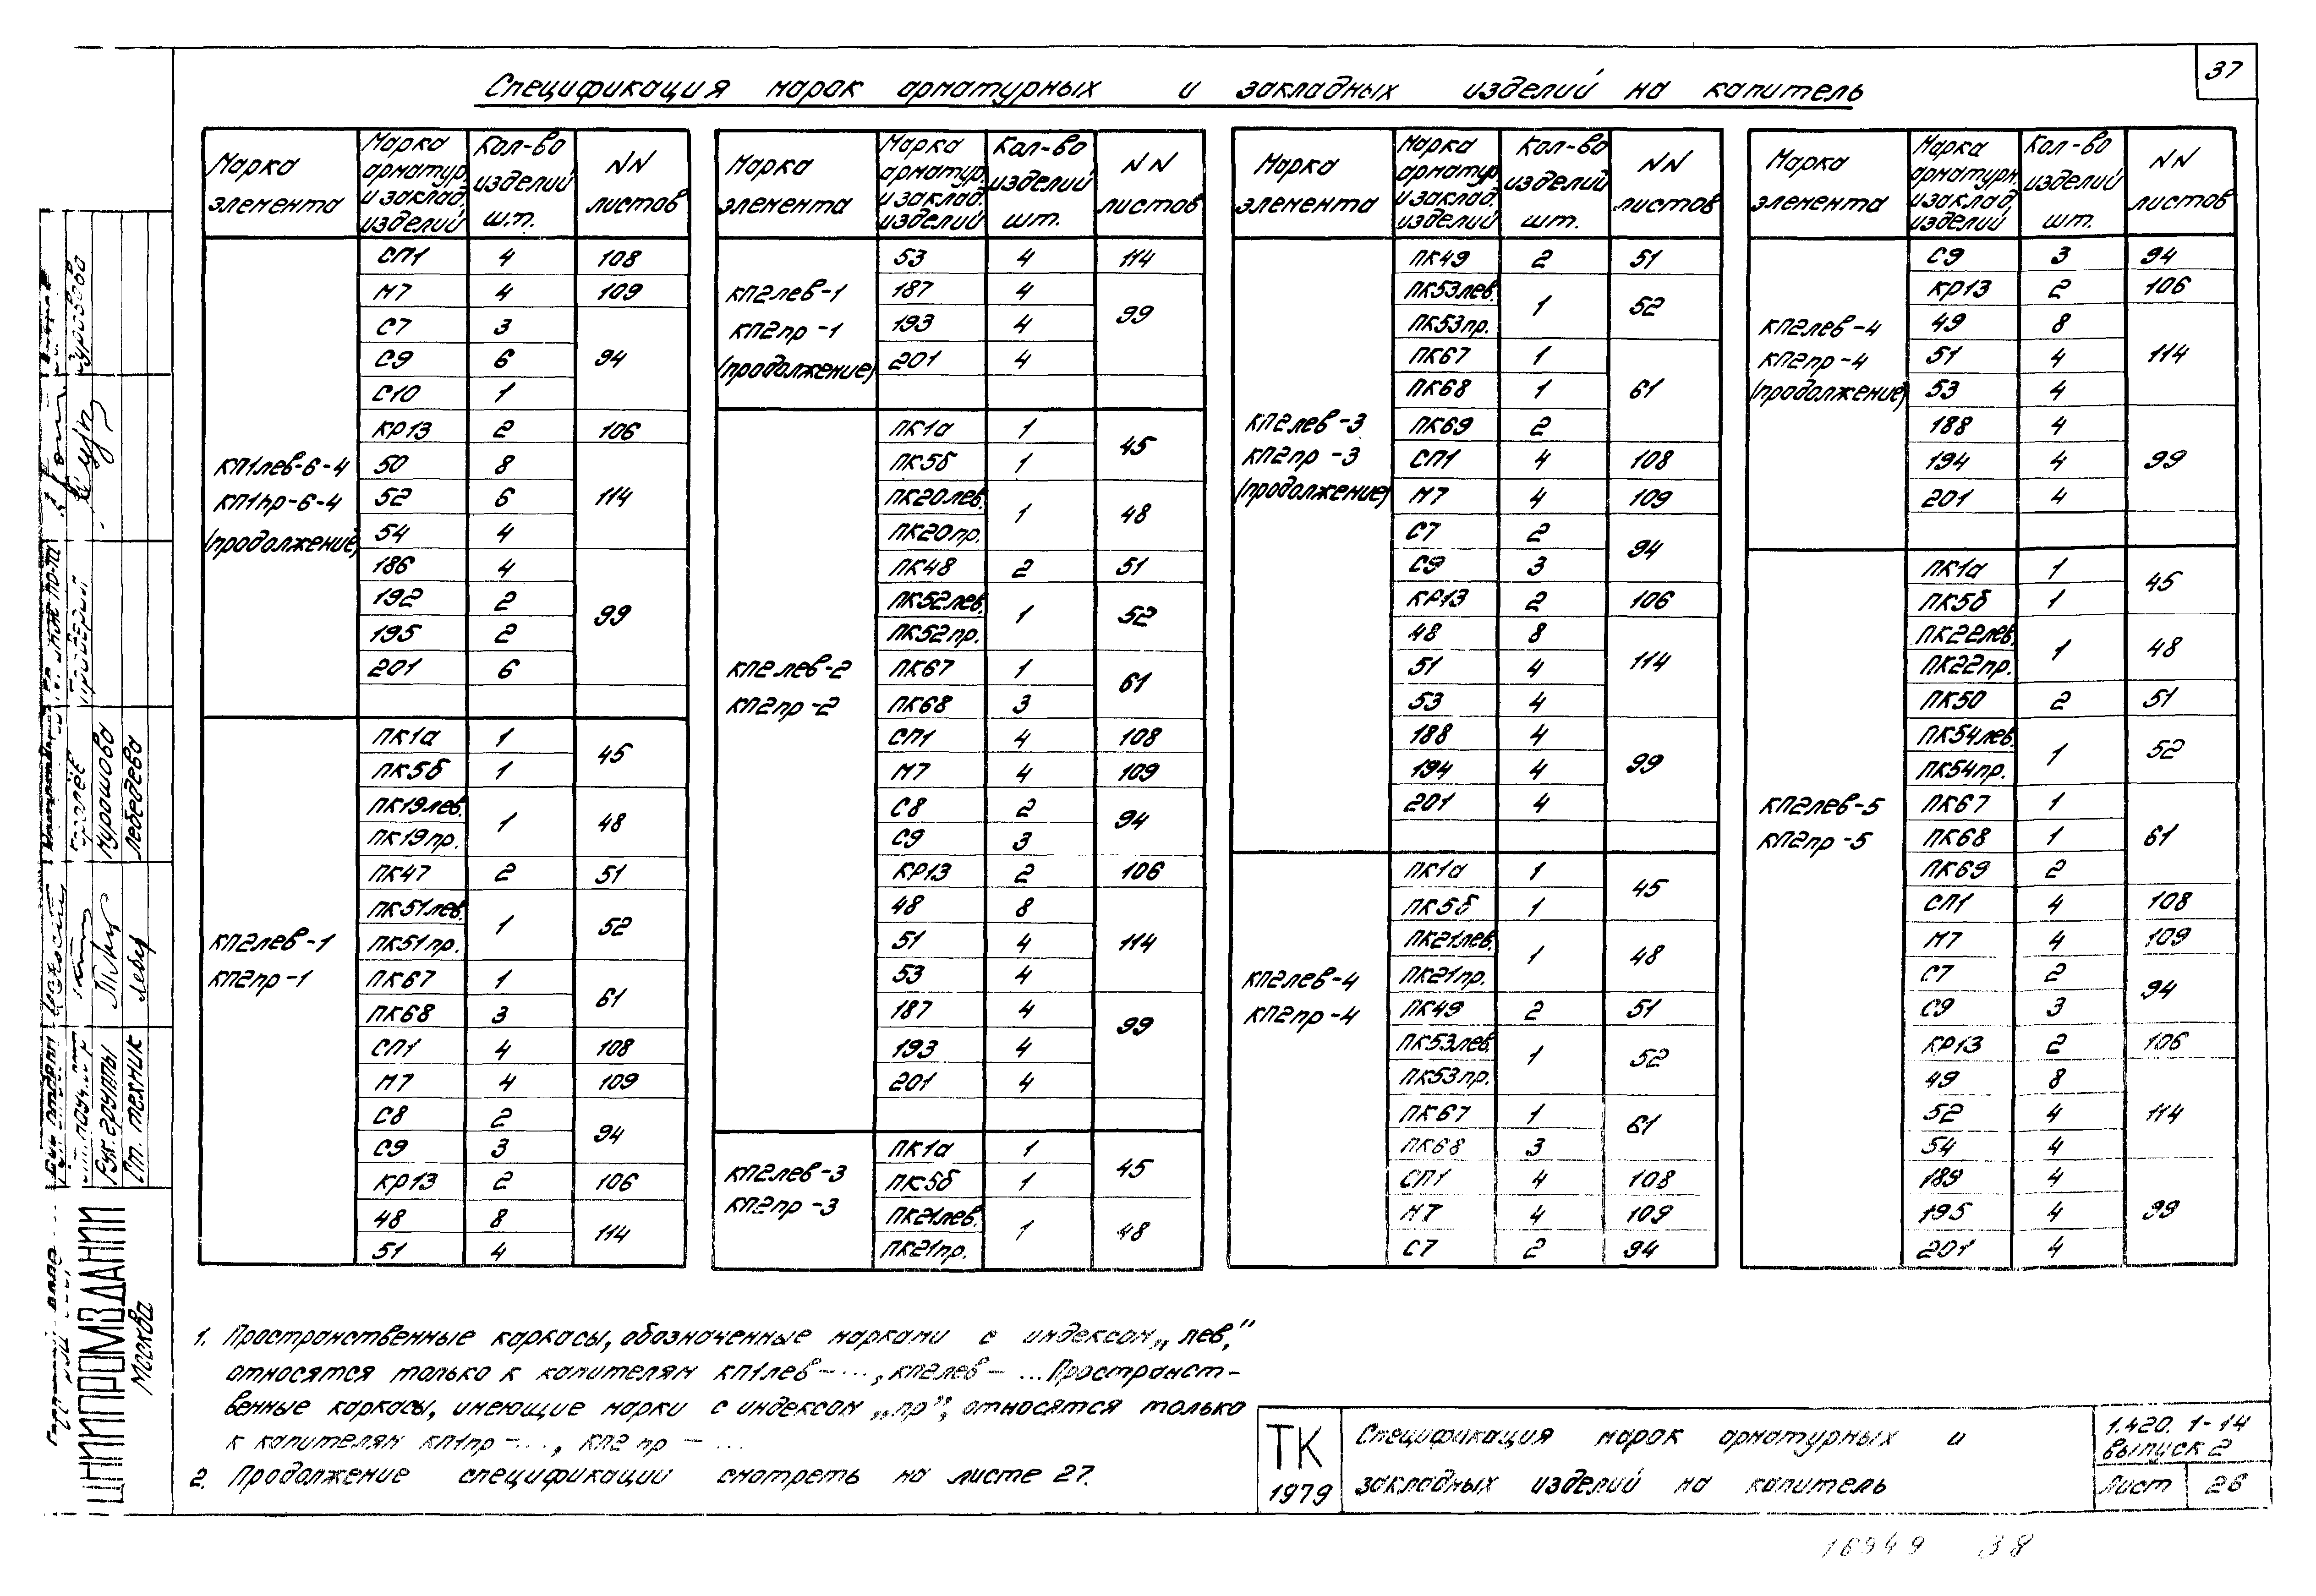 37
Спецификация марок арматурных и закладных изделий на капитель
Марка элемента | Марка арматур. и заклад. изделий | Кол-во изделий шт. | NN листов
КП1лев-6-4 КП1пр-6-4 (продолжение)
СП1 4 108
М7 4 109
С7 3
С9 6 94
С10 1
КР13 2 106
50 8
52 6 114
54 4
186 4
192 2 99
195 2
201 6
КП2лев-1 КП2пр-1
ПК1а 1 45
ПК5б 1
ПК19лев. 1 48
ПК19пр.
ПК47 2 51
ПК51лев. 1 52
ПК51пр.
ПК67 1 61
ПК68 3
СП1 4 108
М7 4 109
С8 2 94
С9 3
КР13 2 106
48 8 114
51 4
Марка элемента | Марка арматур. и заклад. изделий | Кол-во изделий шт. | NN листов
КП2лев-1 КП2пр-1 (продолжение)
53 4 114
187 4
193 4 99
201 4
КП2лев-2 КП2пр-2
ПК1а 1 45
ПК5б 1
ПК20лев. 1 48
ПК20пр.
ПК48 2 51
ПК52лев. 1 52
ПК52пр.
ПК67 1 61
ПК68 3
СП1 4 108
М7 4 109
С8 2 94
С9 3
КР13 2 106
48 8
51 4 114
53 4
187 4 99
193 4
201 4
КП2лев-3 КП2пр-3
ПК1а 1 45
ПК5б 1
ПК21лев. 1 48
ПК21пр.
Марка элемента | Марка арматур. и заклад. изделий | Кол-во изделий шт. | NN листов
КП2лев-3 КП2пр-3 (продолжение)
ПК49 2 51
ПК53лев. 1 52
ПК53пр.
ПК67 1
ПК68 1 61
ПК69 2
СП1 4 108
М7 4 109
С7 2 94
С9 3
КР13 2 106
48 8
51 4 114
53 4
188 4
194 4 99
201 4
КП2лев-4 КП2пр-4
ПК1а 1 45
ПК5б 1
ПК21лев. 1 48
ПК21пр.
ПК49 2 51
ПК53лев. 1 52
ПК53пр.
ПК67 1 61
ПК68 3
СП1 4 108
М7 4 109
С7 2 94
Марка элемента | Марка арматурн. и заклад. изделий | Кол-во изделий шт. | NN листов
КП2лев-4 КП2пр-4 (продолжение)
С9 3 94
КР13 2 106
49 8
51 4 114
53 4
188 4
194 4 99
201 4
КП2лев-5 КП2пр-5
ПК1а 1 45
ПК5б 1
ПК22лев. 1 48
ПК22пр.
ПК50 2 51
ПК54лев. 1 52
ПК54пр.
ПК67 1
ПК68 1 61
ПК69 2
СП1 4 108
М7 4 109
С7 2 94
С9 3
КР13 2 106
49 8
52 4 114
54 4
189 4
195 4 99
201 4
1. Пространственные каркасы, обозначенные марками с индексом „лев.”
относятся только к капителям КП1лев-..., КП2лев-... Пространст-
венные каркасы, имеющие марки с индексом „пр”, относятся только
к капителям КП1пр-..., КП2пр-...
2. Продолжение спецификации смотреть на листе 27.
ТК
1979
Спецификация марок арматурных и
закладных изделий на капитель
1.420.1-14
Выпуск 2
Лист 26
16949 38
ЦНИИПРОМЗДАНИЙ
Москва
Рук. группы Мурашова
Ст. техник Лебедева